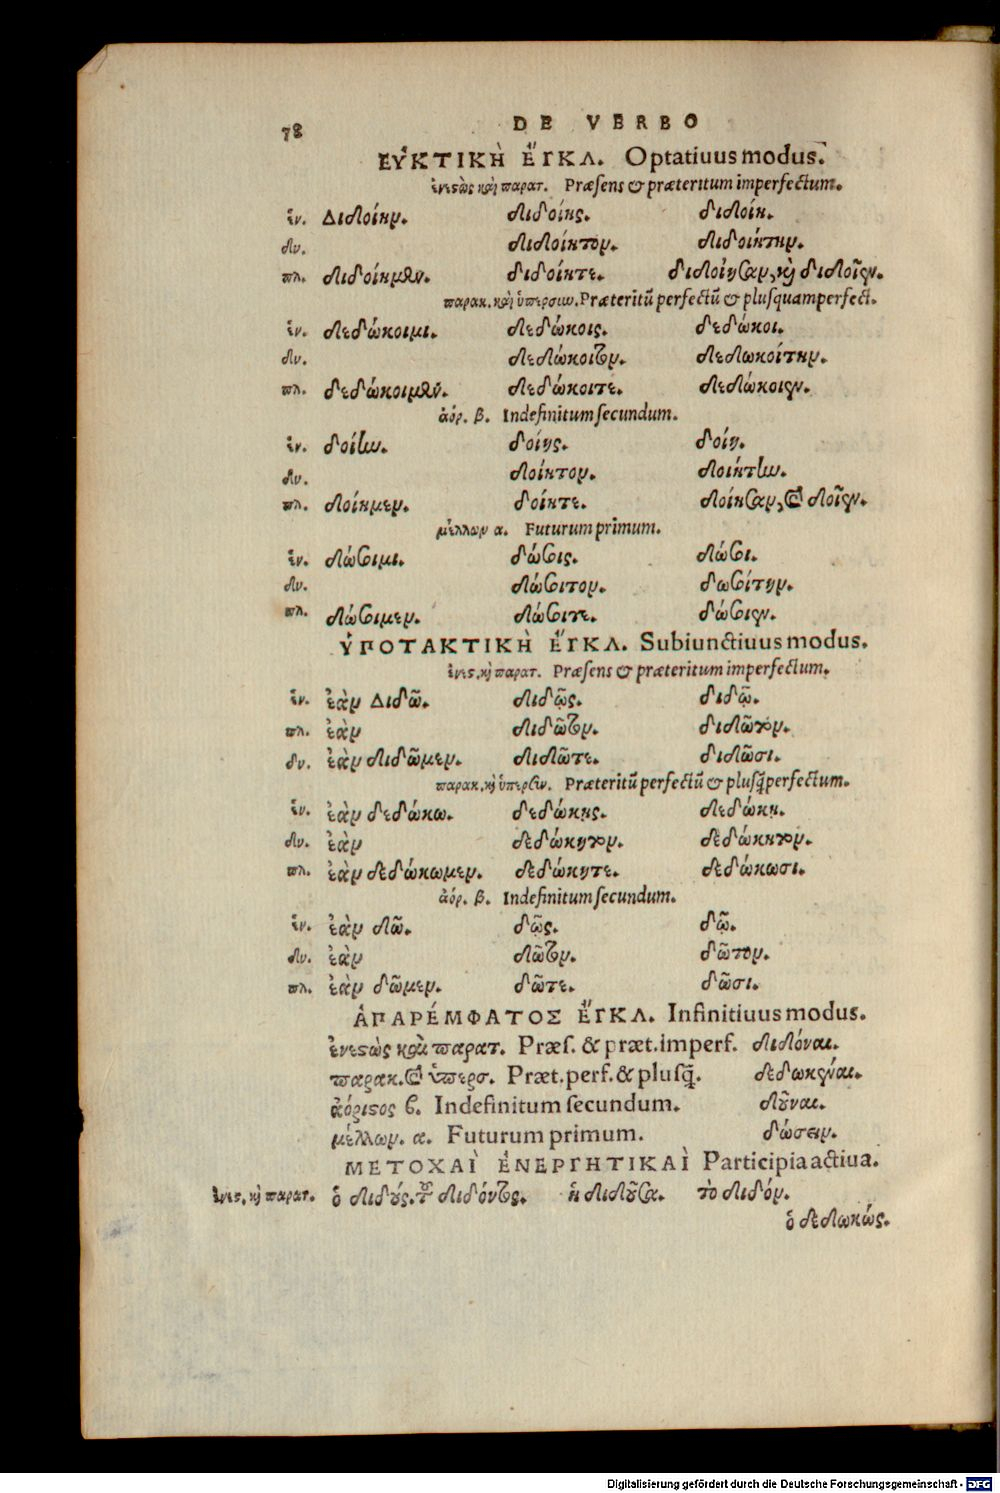 78 DE VERBO
ΕΥ̓ΚΤΙΚῊ ἜΓΚΛ. Optatiuus modus.
ἐνεϛὼς καὶ παρατ. Præſens & præteritum imperfectum.
ἑν. Διδοίην. διδοίης. διδοίη.
δυ. διδοίητον. διδοιήτην.
πλ. διδοίημεν. διδοίητε. διδοίησαν, καὶ διδοῖεν.
παρακ. καὶ ὑπερσιω. Præteritū perfectū & pluſquamperfect.
ἑν. δεδώκοιμι. δεδώκοις. δεδώκοι.
δυ. δεδώκοιτον. δεδωκοίτην.
πλ. δεδώκοιμεν. δεδώκοιτε. δεδώκοιεν.
ἀόρ. β. Indefinitum ſecundum.
ἑν. δοίην. δοίης. δοίη.
δυ. δοίητον. δοιήτην.
πλ. δοίημεν. δοίητε. δοίησαν, καὶ δοῖεν.
μέλλων α. Futurum primum.
ἑν. δώσοιμι. δώσοις. δώσοι.
δυ. δώσοιτον. δωσοίτην.
πλ. δώσοιμεν. δώσοιτε. δώσοιεν.
ὙΠΟΤΑΚΤΙΚῊ ἜΓΚΛ. Subiunctiuus modus.
ἐνεϛ. καὶ παρατ. Præſens & præteritum imperfectum.
ἑν. ἐὰν Διδῶ. διδῷς. διδῷ.
πλ. ἐὰν διδῶτον. διδῶτον.
δυ. ἐὰν διδῶμεν. διδῶτε. διδῶσι.
παρακ. καὶ ὑπερσιν. Præteritū perfectū & pluſq̄perfectum.
ἑν. ἐὰν δεδώκω. δεδώκῃς. δεδώκῃ.
δυ. ἐὰν δεδώκητον. δεδώκητον.
πλ. ἐὰν δεδώκωμεν. δεδώκητε. δεδώκωσι.
ἀόρ. β. Indefinitum ſecundum.
ἑν. ἐὰν δῶ. δῷς. δῷ.
δυ. ἐὰν δῶτον. δῶτον.
πλ. ἐὰν δῶμεν. δῶτε. δῶσι.
ἈΠΑΡΈΜΦΑΤΟΣ ἜΓΚΛ. Infinitiuus modus.
ἐνεϛὼς καὶ παρατ. Præſ. & præt. imperf. διδόναι.
παρακ. καὶ ὑπερσ. Præt. perf. & pluſq̄. δεδωκέναι.
ἀόριϛος β. Indefinitum ſecundum. δοῦναι.
μέλλων. α. Futurum primum. δώσειν.
ΜΕΤΟΧΑῚ ἘΝΕΡΓΗΤΙΚΑῚ Participia actiua.
ἐνεϛ. καὶ παρατ. ὁ διδούς. τοῦ διδόντος. ἡ διδοῦσα. τὸ διδόν.
ὁ δεδωκώς.
Digitalisierung gefördert durch die Deutsche Forschungsgemeinschaft - DFG